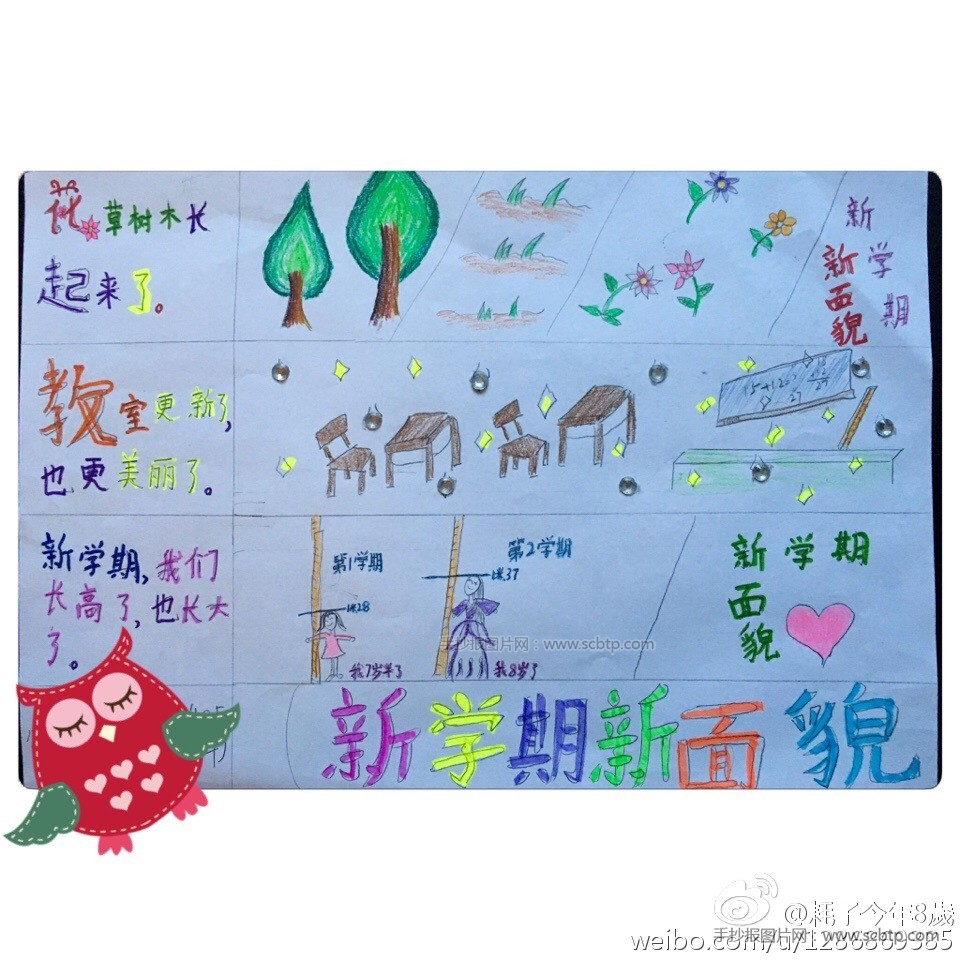 花草树木长
起来了。
新学期
新面貌
教室更新了，
也更美丽了。
新学期，我们
长高了，也长大
了。
第1学期
1米28
我7岁半了
第2学期
1米37
我8岁了
新学期
面貌
手抄报图片网：www.scbtp.com
新学期新面貌
@耗子今年8歲
手抄报图片网：www.scbtp.com